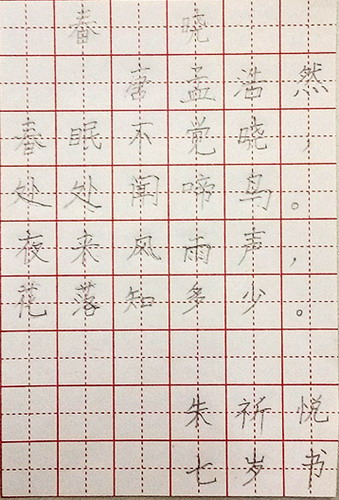 春晓
唐孟浩然
春眠不觉晓，
处处闻啼鸟。
夜来风雨声，
花落知多少。
朱祈悦
七岁书